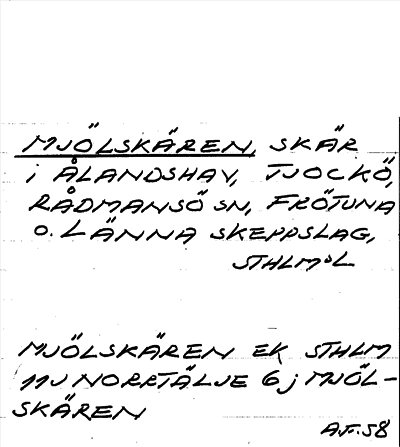 MJÖLSKÄREN, SKÄR
i ÅLANDSHAV, TJOCKÖ,
RÅDMANSÖ SN, FRÖTUNA
O. LÄNNA SKEPPSLAG,
STHLMSL
MJÖLSKÄREN EK STHLM
11J NORRTÄLJE 6j MJÖL-
SKÄREN
A.F. 58